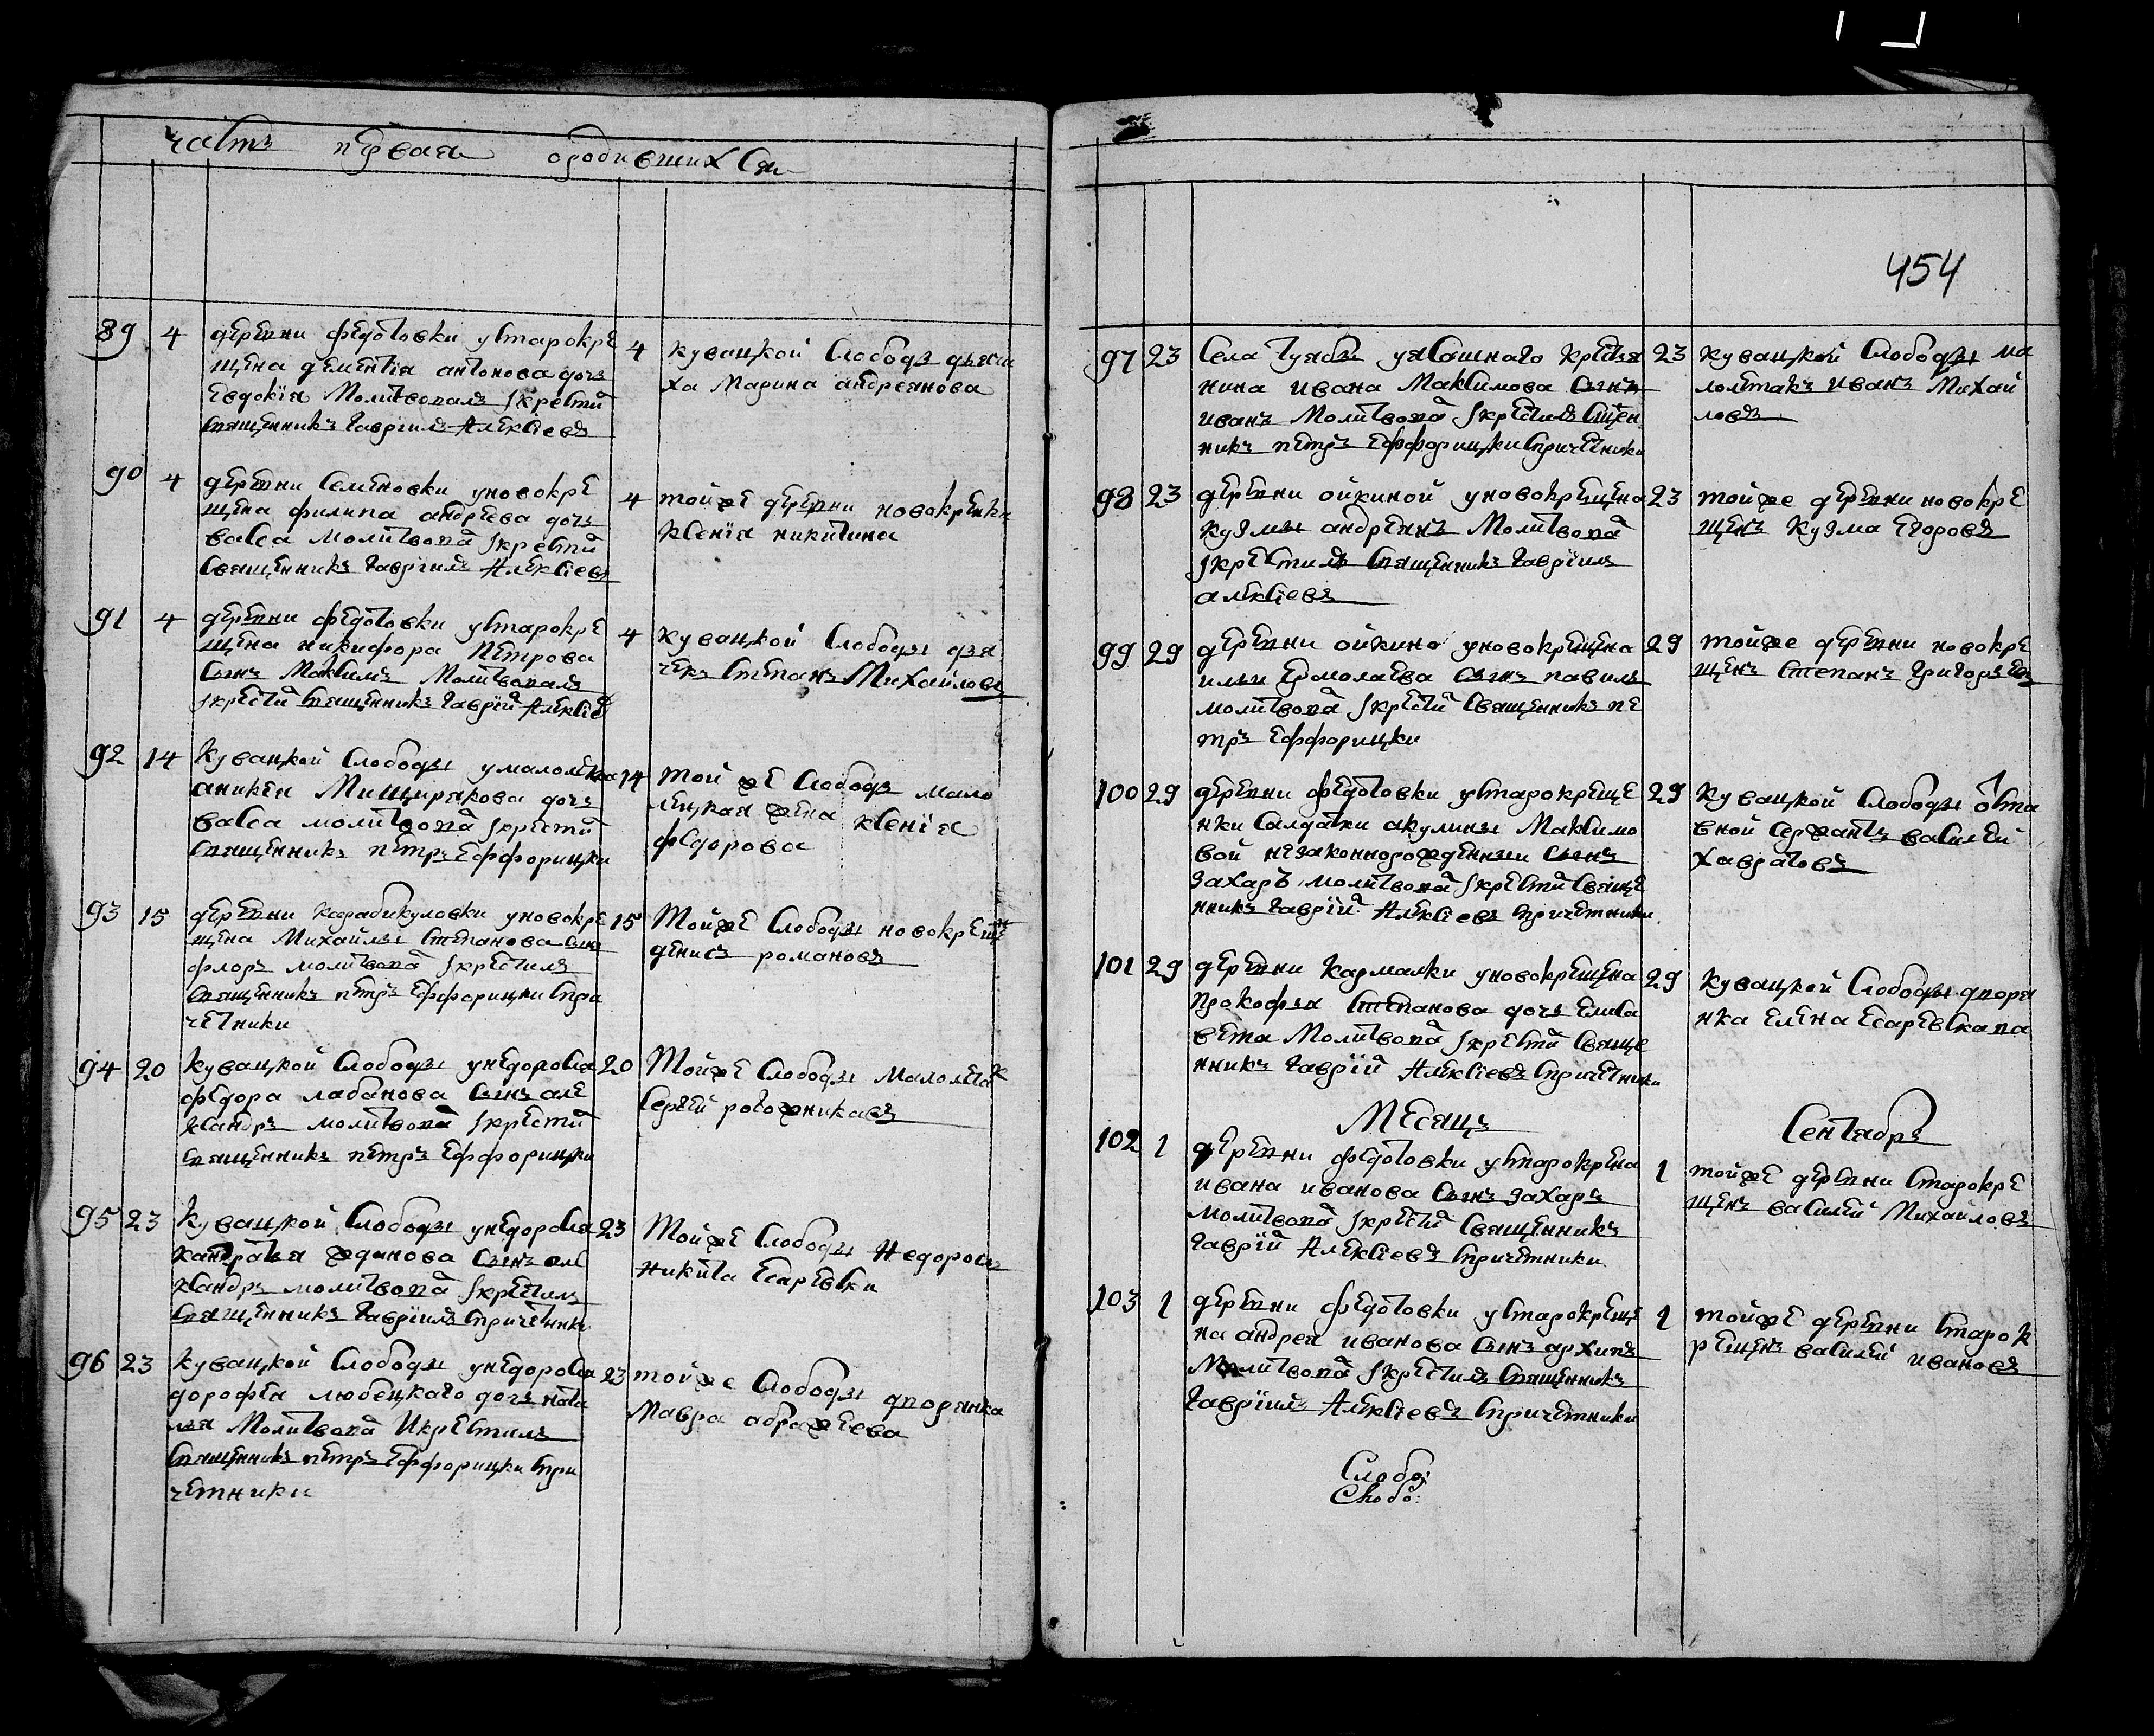 часть первая ородившихся
89 4 деревни федотовки устарокре
щена дементїя антонова дочь
Евдокїя Молитвовалъ Iкрестил
Священникъ Гаврїилъ Алексіевъ
4 кувацкой Слободы дьячи
ха Марина андреянова
90 4 деревни Семеновки уновокре
щена филипа андреева дочь
васса молитвовал Iкрестил
Священникъ Гаврїилъ Алексіевъ
4 тойже деревни новокрещенка
ксенїя никитина
91 4 деревни федотовки устарокре
щена никифора Петрова
Сынъ Максимъ Молитвовалъ
Iкрестил Священникъ Гаврїил Алексіев
4 куващкой Слободы дья
чекъ Степанъ Михайловъ
92 14 Кувацкой Слободы умалолетка
аникея Мищирякова дочь
васса молитвовал Iкрестил
Священникъ петръ Еффорицки
14 той же Слободы мало
лецкая жена ксенїя
федорова
93 15 деревни карабикуловки уновокре
щена Михайлы Степанова сынъ
флоръ молитвовал Iкрестилъ
Священникъ петръ Еффорицки спри
четники
15 Тойже Слободы новокрещен
денисъ романовъ
94 20 Кувацкой Слободы унедоросля
федора лабанова Сынъ але
ксандръ молитвовал Iкрестил
Священникъ петръ Еффорицки
20 Тойже Слободы Малолеток
Сергей рогожникавъ
95 23 Кувацкой Слободы унедоросля
кандратья жданова Сынъ але
ксандръ молитвовал Iкрестилъ
Священникъ Гаврїилъ спричетники
23 Тойже Слободы Недоросль
Никита Есаревски
96 23 Кувацкой Слободы унедоросля
дорофея любецкаго дочь ната
лья Молитвовал Икрестилъ
Священникъ петръ Еффорицки спри
четники
23 тойже Слободы дворянка
Мавра абражеева
454
97 23 Села туябы уясашнаго крестья
нина ивана Максимова Сынъ
иванъ Молитвовал Iкрестилъ Сщен
никъ петръ Еффорицки спричетники
23 Кувацкой Слободы ма
лолетакъ иванъ Михай
ловъ
98 23 деревни ойкиной уновокрещена
кузмы андреянъ Молитвовал
Iкрестилъ Священникъ Гаврїилъ
алексіевъ
23 тойже деревни новокре
щенъ Кузма Егоровъ
99 29 деревни ойкино уновокрещена
ильи Ермолаева Сынъ павилъ
молитвовал Iкрестил Священникъ пе
тръ Еффорицки
29 тойже деревни новокре
щенъ Степанъ Григорьевъ
100 29 деревни федотовки устарокреще
нки Салдатки акулины Максимо
вой незаконнорожденныи Сынъ
Захаръ молитвовал Iкрестил Свяще
нникъ Гаврїил Алексіевъ спричетники
29 Кувацкой Слободы отста
вной Сержантъ василей
Хавратовъ
101 29 деревни Кармалки уновокрещена
Прокофья Степанова дочь Елиса
вета Молитвовал Iкрестил Свяще
нникъ Гаврїил Алексіевъ спричетники
29 Кувацкой Слободы дворя
нка Елена Есаревскава
Месяцъ Сентябрь
102 1 деревни федотовки устарокрещена
ивана иванова Сынъ захаръ
молитвовал Iкрестил Священникъ
Гаврїил Алексіевъ спричетники
1 тойже деревни старокре
щенъ василей Михайловъ
103 1 деревни федотовки устарокреще
на андрея иванова Сынъ архипъ
Молитвовал Iкрестилъ Священникъ
Гаврїилъ Алексіевъ спричетники
1 тойже деревни старок
рещенъ василей ивановъ
Слобо: